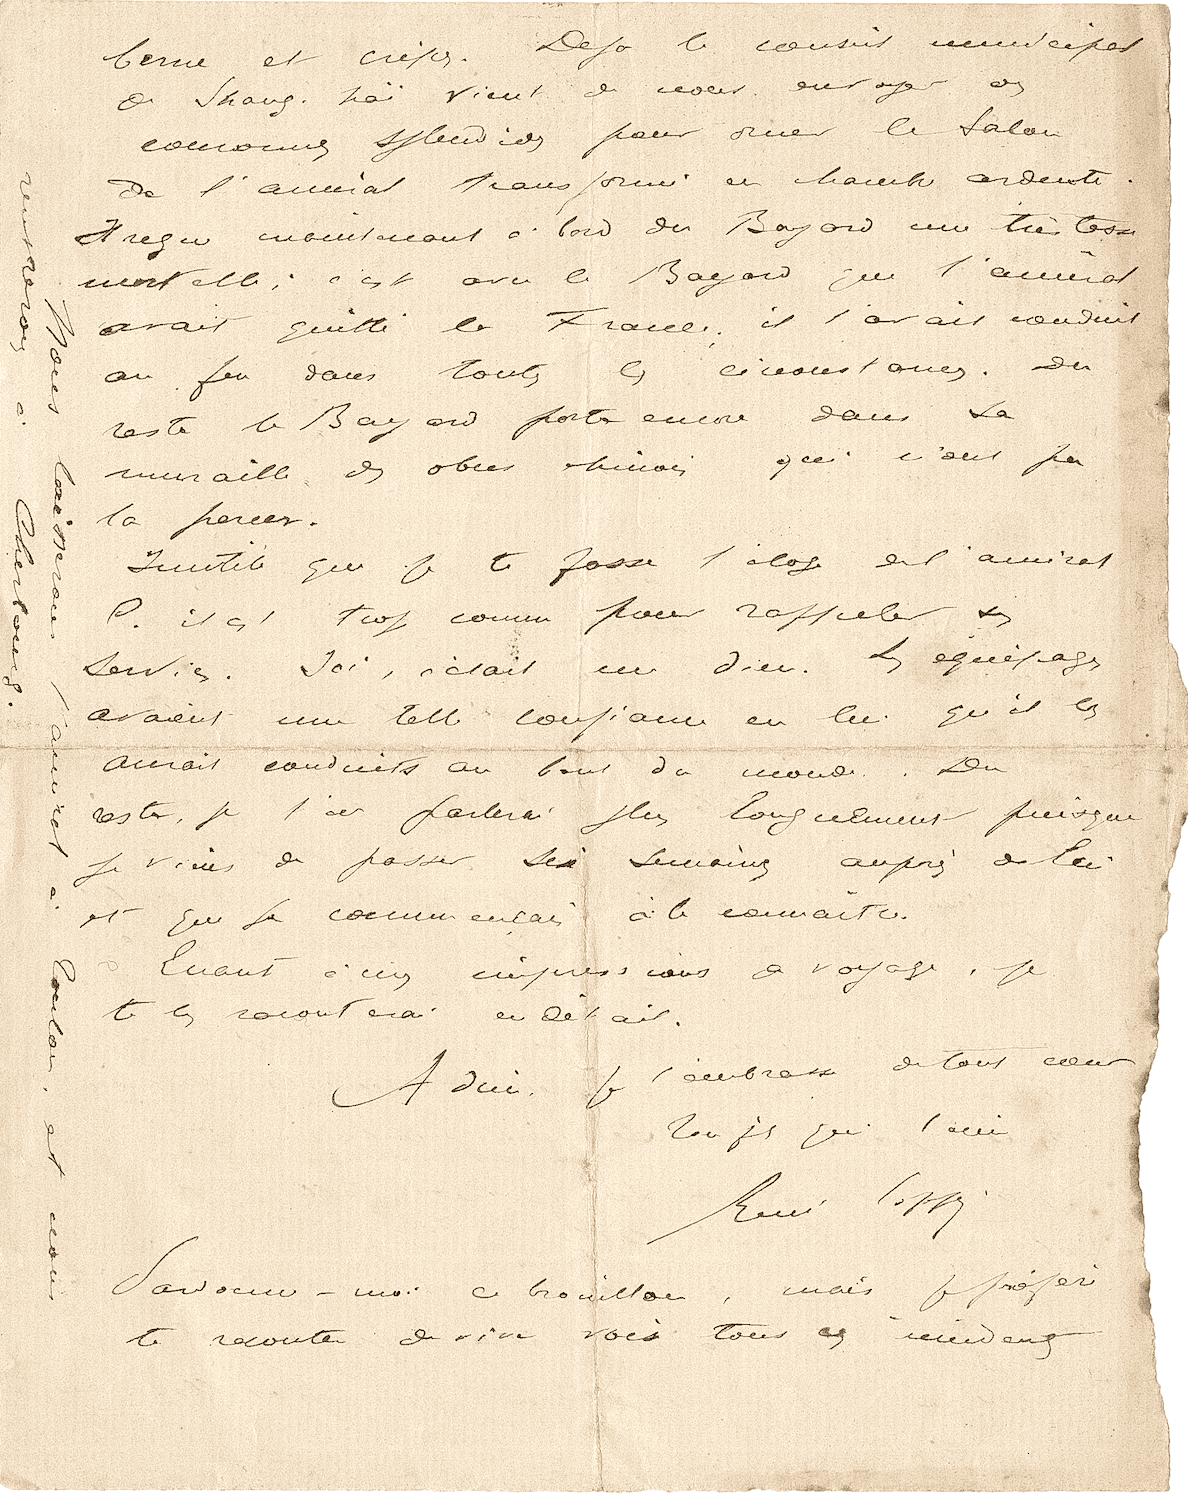 berne et crêpes. Deja le conseil municipal
de Shang-haï vient de nous envoyer des
couronnes splendides pour orner le salon
de l'amiral transformé en chambre ardente.
Il règne maintenant à bord du Bayard une tristesse
mortelle; c'est avec le Bayard que l'amiral
avait quitté la France, il l'avait conduit
au feu dans toutes les circonstances. Du
reste le Bayard porte encore dans sa
muraille des obus chinois qui n'ont pu
la percer.
Inutile que je te fasse l'éloge de l'amiral
C. il est trop connu pour rappeler ses
services. Ici, c'était un dieu. Les équipages
avaient une telle confiance en lui qu'il les
aurait conduits au bout du monde. Du
reste, je t'en parlerai plus longuement puisque
je viens de passer six semaines auprès de lui
et que je commençais à le connaître.
Quant à mes impressions de voyage, je
te les raconterai en détail.
Adieu. Je t'embrasse de tout coeur
Ton fils qui t'aime
René
Pardonne-moi ce brouillon, mais je préfère
te raconter de vive voix tous ces incidents
Nous laisserons l'amiral à Toulon, et nous
rentrerons à Cherbourg.